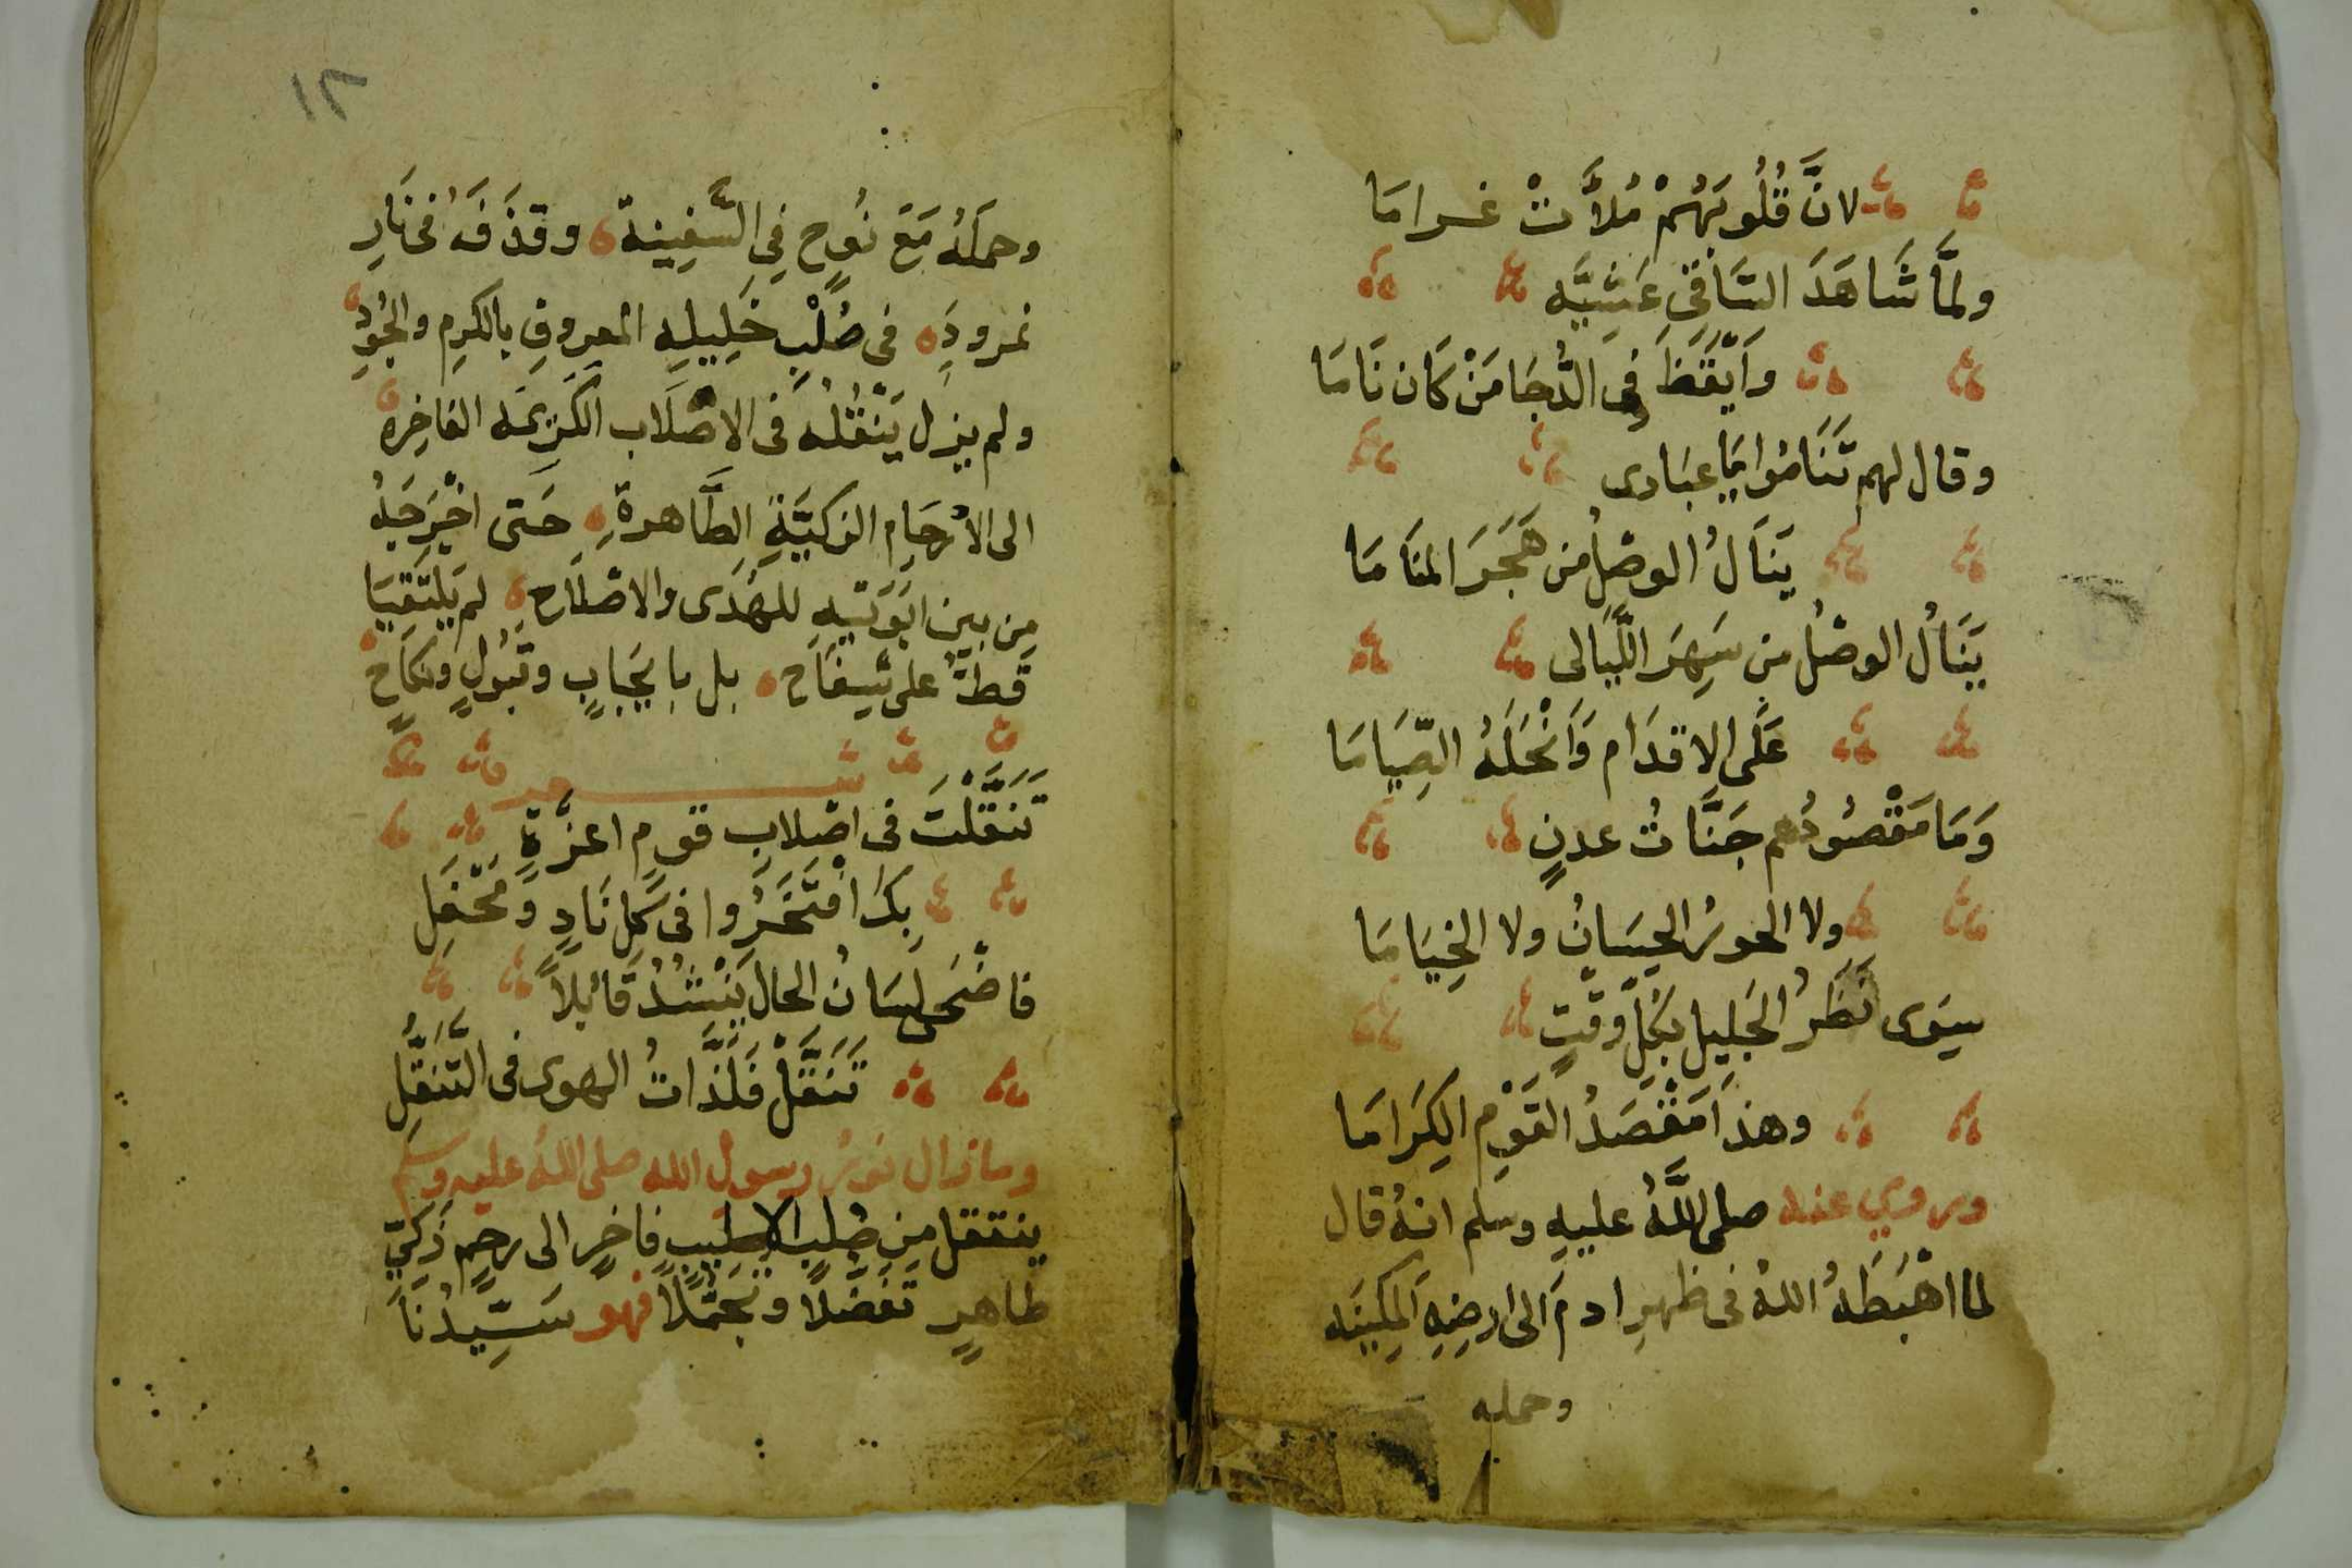 لانَّ قُلُوبَهُمْ مُلأَتْ غراما
ولمَّا شَاهَدَ السَّاقى عَشِيَّه
وَايْقَظَ فِى الدُّجَا مَنْ كَان نَامَا
وقال لهم تَنَامُوا يَا عبَادى
يَنَالُ الوصْلُ من هَجَرَ المنَامَا
يَنَالُ الوصْلُ مِن سَهِرَ اللَّيَالى
عَلَى الاقدَام وَانْحَلَهُ الصِّيَامَا
وَمَا مَقْصُودُهم جَنَّاتُ عدنٍ
ولا الحورُ الحِسَانُ ولا الخِيَامَا
سِوَى نَظَرُ الجَلِيلِ بكلِّ وقتٍ
وهذَا مَقْصَدُ القَوْمِ الكِرَامَا
وروي عنه صلى اللَّهُ عليهِ وسلم انهُ قال
لما اهْبَطَهُ اللهُ فى ظهرِ ادمَ الى ارضِهِ المكينَه
وحمله
١٢
وحمَلَهُ مَعَ نُوحٍ فِى السَّفِينة وقذَفَهُ فى نَارِ
نمرودِه فى صُلْبِ خَلِيلِهِ المعروفِ بالكرمِ والجُودِ
ولم يزل يَنْقُلُهُ فى الاصْلَاب الكَرِيمَه الفاخِره
الى الارْحَامِ الزكيَّةِ الطَّاهرةِ حَتى اخْرَجَهُ
مِن بين ابَوَيْهِ للهُدَى والاصْلَاح لم يَلْتَقِيَا
قطُّ على سِفَاح بل بايجَابٍ وقبُولٍ ونكاحٍ
شعر
تَنَقَّلْتَ فى اصْلابِ قومٍ اعزَّةٍ
بِكَ افْتَخَرُوا فى كلِّ نَادٍ وَمَحْفَلِ
فاضْحَى لسَانُ الحال يَنْشُدُ قَائلاً
تَنَقَّلْ فَلَذَّاتُ الهوى فى التَّنَقُّلِ
وما زال نورُ رسولُ الله صلى اللهُ عليه وسلم
ينتقل مِن صُلبٍ فاخرٍ الى رحمٍ زَكيّ
طاهرٍ تفضّلاً وتجمّلاً فهو سَيّدُنَا